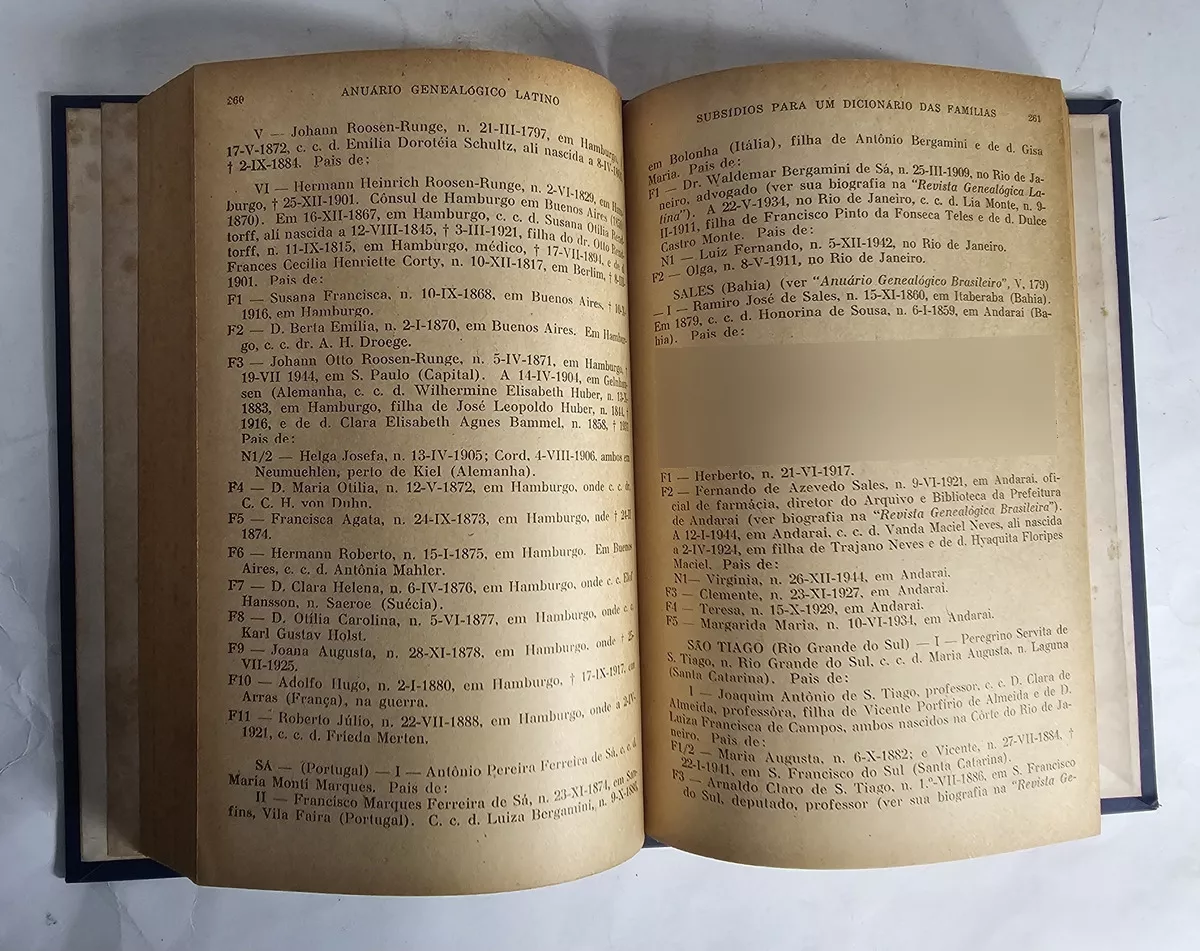 260
ANUÁRIO GENEALÓGICO LATINO
V — Johann Roosen-Runge, n. 21-III-1797, em Hamburgo,
17-V-1872, c. c. d. Emília Dorotéia Schultz, ali nascida a
† 2-IX-1884. Pais de:
VI — Hermann Heinrich Roosen-Runge, n. 2-VI-1829, em
burgo, † 25-XII-1901. Cônsul de Hamburgo em Buenos Aires
1870). Em 16-XII-1867, em Hamburgo, c. c. d. Susana Otília
torff, ali nascida a 12-VIII-1845, † 3-III-1921, filha do dr. Otto
torff, n. 11-IX-1815, em Hamburgo, médico, † 17-VII-1894, e de d.
Frances Cecilia Henriette Corty, n. 10-XII-1817, em Berlim,
1901. Pais de:
F1 — Susana Francisca, n. 10-IX-1868, em Buenos Aires,
1916, em Hamburgo.
F2 — D. Berta Emília, n. 2-I-1870, em Buenos Aires. Em
go, c. c. dr. A. H. Droege.
F3 — Johann Otto Roosen-Runge, n. 5-IV-1871, em Hamburgo, †
19-VII 1944, em S. Paulo (Capital). A 14-IV-1904, em
sen (Alemanha, c. c. d. Wilhermine Elisabeth Huber, n.
1883, em Hamburgo, filha de José Leopoldo Huber, n. 1844, †
1916, e de d. Clara Elisabeth Agnes Bammel, n. 1858, †
Pais de:
N1/2 — Helga Josefa, n. 13-IV-1905; Cord, 4-VIII-1906, ambos em
Neumuehlen, perto de Kiel (Alemanha).
F4 — D. Maria Otília, n. 12-V-1872, em Hamburgo, onde c. c. dr.
C. C. H. von Duhn.
F5 — Francisca Agata, n. 24-IX-1873, em Hamburgo, nde †
1874.
F6 — Hermann Roberto, n. 15-I-1875, em Hamburgo. Em Buenos
Aires, c. c. d. Antônia Mahler.
F7 — D. Clara Helena, n. 6-IV-1876, em Hamburgo, onde c. c.
Hansson, n. Saeroe (Suécia).
F8 — D. Otília Carolina, n. 5-VI-1877, em Hamburgo, onde c. c.
Karl Gustav Holst.
F9 — Joana Augusta, n. 28-XI-1878, em Hamburgo, onde †
VII-1925.
F10 — Adolfo Hugo, n. 2-I-1880, em Hamburgo, † 17-IX-1917, em
Arras (França), na guerra.
F11 — Roberto Júlio, n. 22-VII-1888, em Hamburgo, onde a
1921, c. c. d. Frieda Merten.
SÁ — (Portugal) — I — Antônio Pereira Ferreira de Sá, c. c. d.
Maria Monti Marques. Pais de:
II — Francisco Marques Ferreira de Sá, n. 23-XI-1874, em
fins, Vila Faira (Portugal). C. c. d. Luiza Bergamini, n.
SUBSÍDIOS PARA UM DICIONÁRIO DAS FAMÍLIAS
261
em Bolonha (Itália), filha de Antônio Bergamini e de d. Gisa
Maria. Pais de:
F1 — Dr. Waldemar Bergamini de Sá, n. 25-III-1909, no Rio de Ja-
neiro, advogado (ver sua biografia na "Revista Genealógica La-
tina"). A 22-V-1934, no Rio de Janeiro, c. c. d. Lia Monte, n. 9-
II-1911, filha de Francisco Pinto da Fonseca Teles e de d. Dulce
Castro Monte. Pais de:
N1 — Luiz Fernando, n. 5-XII-1942, no Rio de Janeiro.
F2 — Olga, n. 8-V-1911, no Rio de Janeiro.
SALES (Bahia) (ver "Anuário Genealógico Brasileiro", V, 179)
— I — Ramiro José de Sales, n. 15-XI-1860, em Itaberaba (Bahia).
Em 1879, c. c. d. Honorina de Sousa, n. 6-I-1859, em Andarai (Ba-
hia). Pais de:
F1 — Herberto, n. 21-VI-1917.
F2 — Fernando de Azevedo Sales, n. 9-VI-1921, em Andarai, ofi-
cial de farmácia, diretor do Arquivo e Biblioteca da Prefeitura
de Andarai (ver biografia na "Revista Genealógica Brasileira").
A 12-I-1944, em Andarai, c. c. d. Vanda Maciel Neves, ali nascida
a 2-IV-1924, em filha de Trajano Neves e de d. Hyaquita Floripes
Maciel. Pais de:
N1— Virginia, n. 26-XII-1944, em Andarai.
F3 — Clemente, n. 23-XI-1927, em Andarai.
F4 — Teresa, n. 15-X-1929, em Andarai.
F5 — Margarida Maria, n. 10-VI-1934, em Andarai.
SÃO TIAGO (Rio Grande do Sul) — I — Peregrino Servita de
S. Tiago, n. Rio Grande do Sul, c. c. d. Maria Augusta, n. Laguna
(Santa Catarina). Pais de:
I — Joaquim Antônio de S. Tiago, professor, c. c. D. Clara de
Almeida, professôra, filha de Vicente Porfírio de Almeida e de D.
Luiza Francisca de Campos, ambos nascidos na Côrte do Rio de Ja-
neiro. Pais de:
F1/2 — Maria Augusta, n. 6-X-1882; e Vicente, n. 27-VII-1884, †
22-I-1941, em S. Francisco do Sul (Santa Catarina).
F3 — Arnaldo Claro de S. Tiago, n. 1.º-VII-1886, em S. Francisco
do Sul, deputado, professor (ver sua biografia na "Revista Ge-